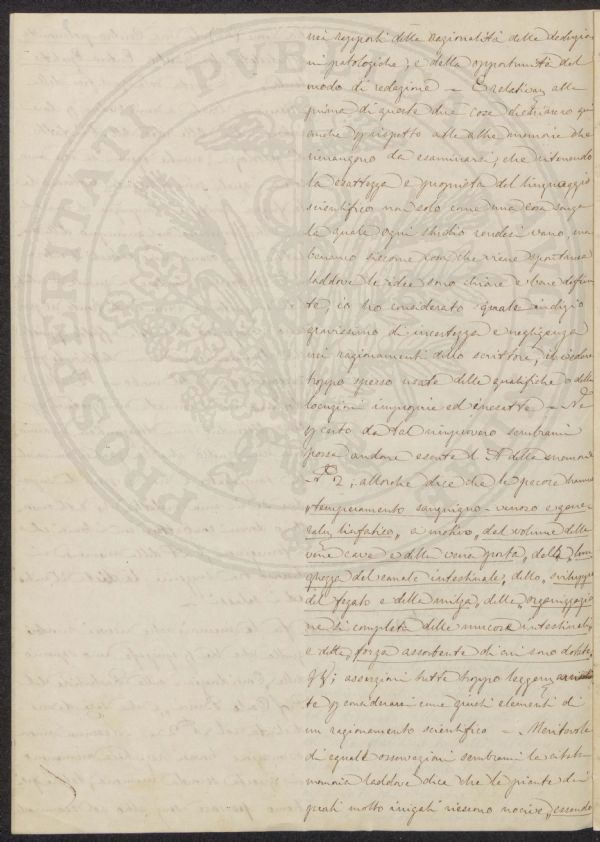 nei rapporti della razionalità delle deduzio-
ni patologiche, e della opportunità del
modo di redazione — E relativam. alla
prima di queste due cose dichiarerò qui
anche p rispetto alle altre memorie che
rimangono da esaminarsi, che ritenendo
la esattezza e proprietà del linguaggio
scientifico non solo come una cosa senza
la quale ogni studio rendesi vano, ma
siccome cosa che viene spontanea
laddove le idee sono chiare e bene defini-
te; io ho considerato quale indizio
gravissimo di incertezza e negligenza
nei ragionamenti dello scrittore, il vedere
troppo spesso usate delle qualifiche o delle
locuzioni improprie ed inesatte — Nè
p certo da tal rimprovero sembrami
possa andare esente l'A della memoria
N.º 2, allorchè dice che le pecore hanno
"temperamento sanguigno-venoso e gene-
ralm. linfatico, a motivo, del volume delle
vene cave e della vena porta, della lun-
ghezza del canale intestinale, dello sviluppo
del fegato e della milza, della organizzazio-
ne sì completa delle mucose intestinali,
e della forza assorbente di cui sono dotate,
asserzioni tutte troppo leggerm.
te p considerarsi come giusti elementi di
un ragionamento scientifico — Meritevole
di eguale osservazioni sembrami la citata
memoria laddove dice che le piante dei
quali molto irrigati riescono nocive, essendo
PROSPERITATI PVBLICAE